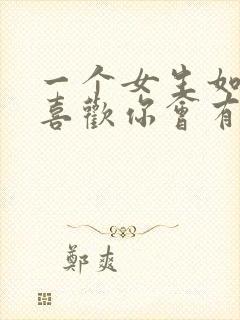 一个女生如
喜歡你會有
鄭爽